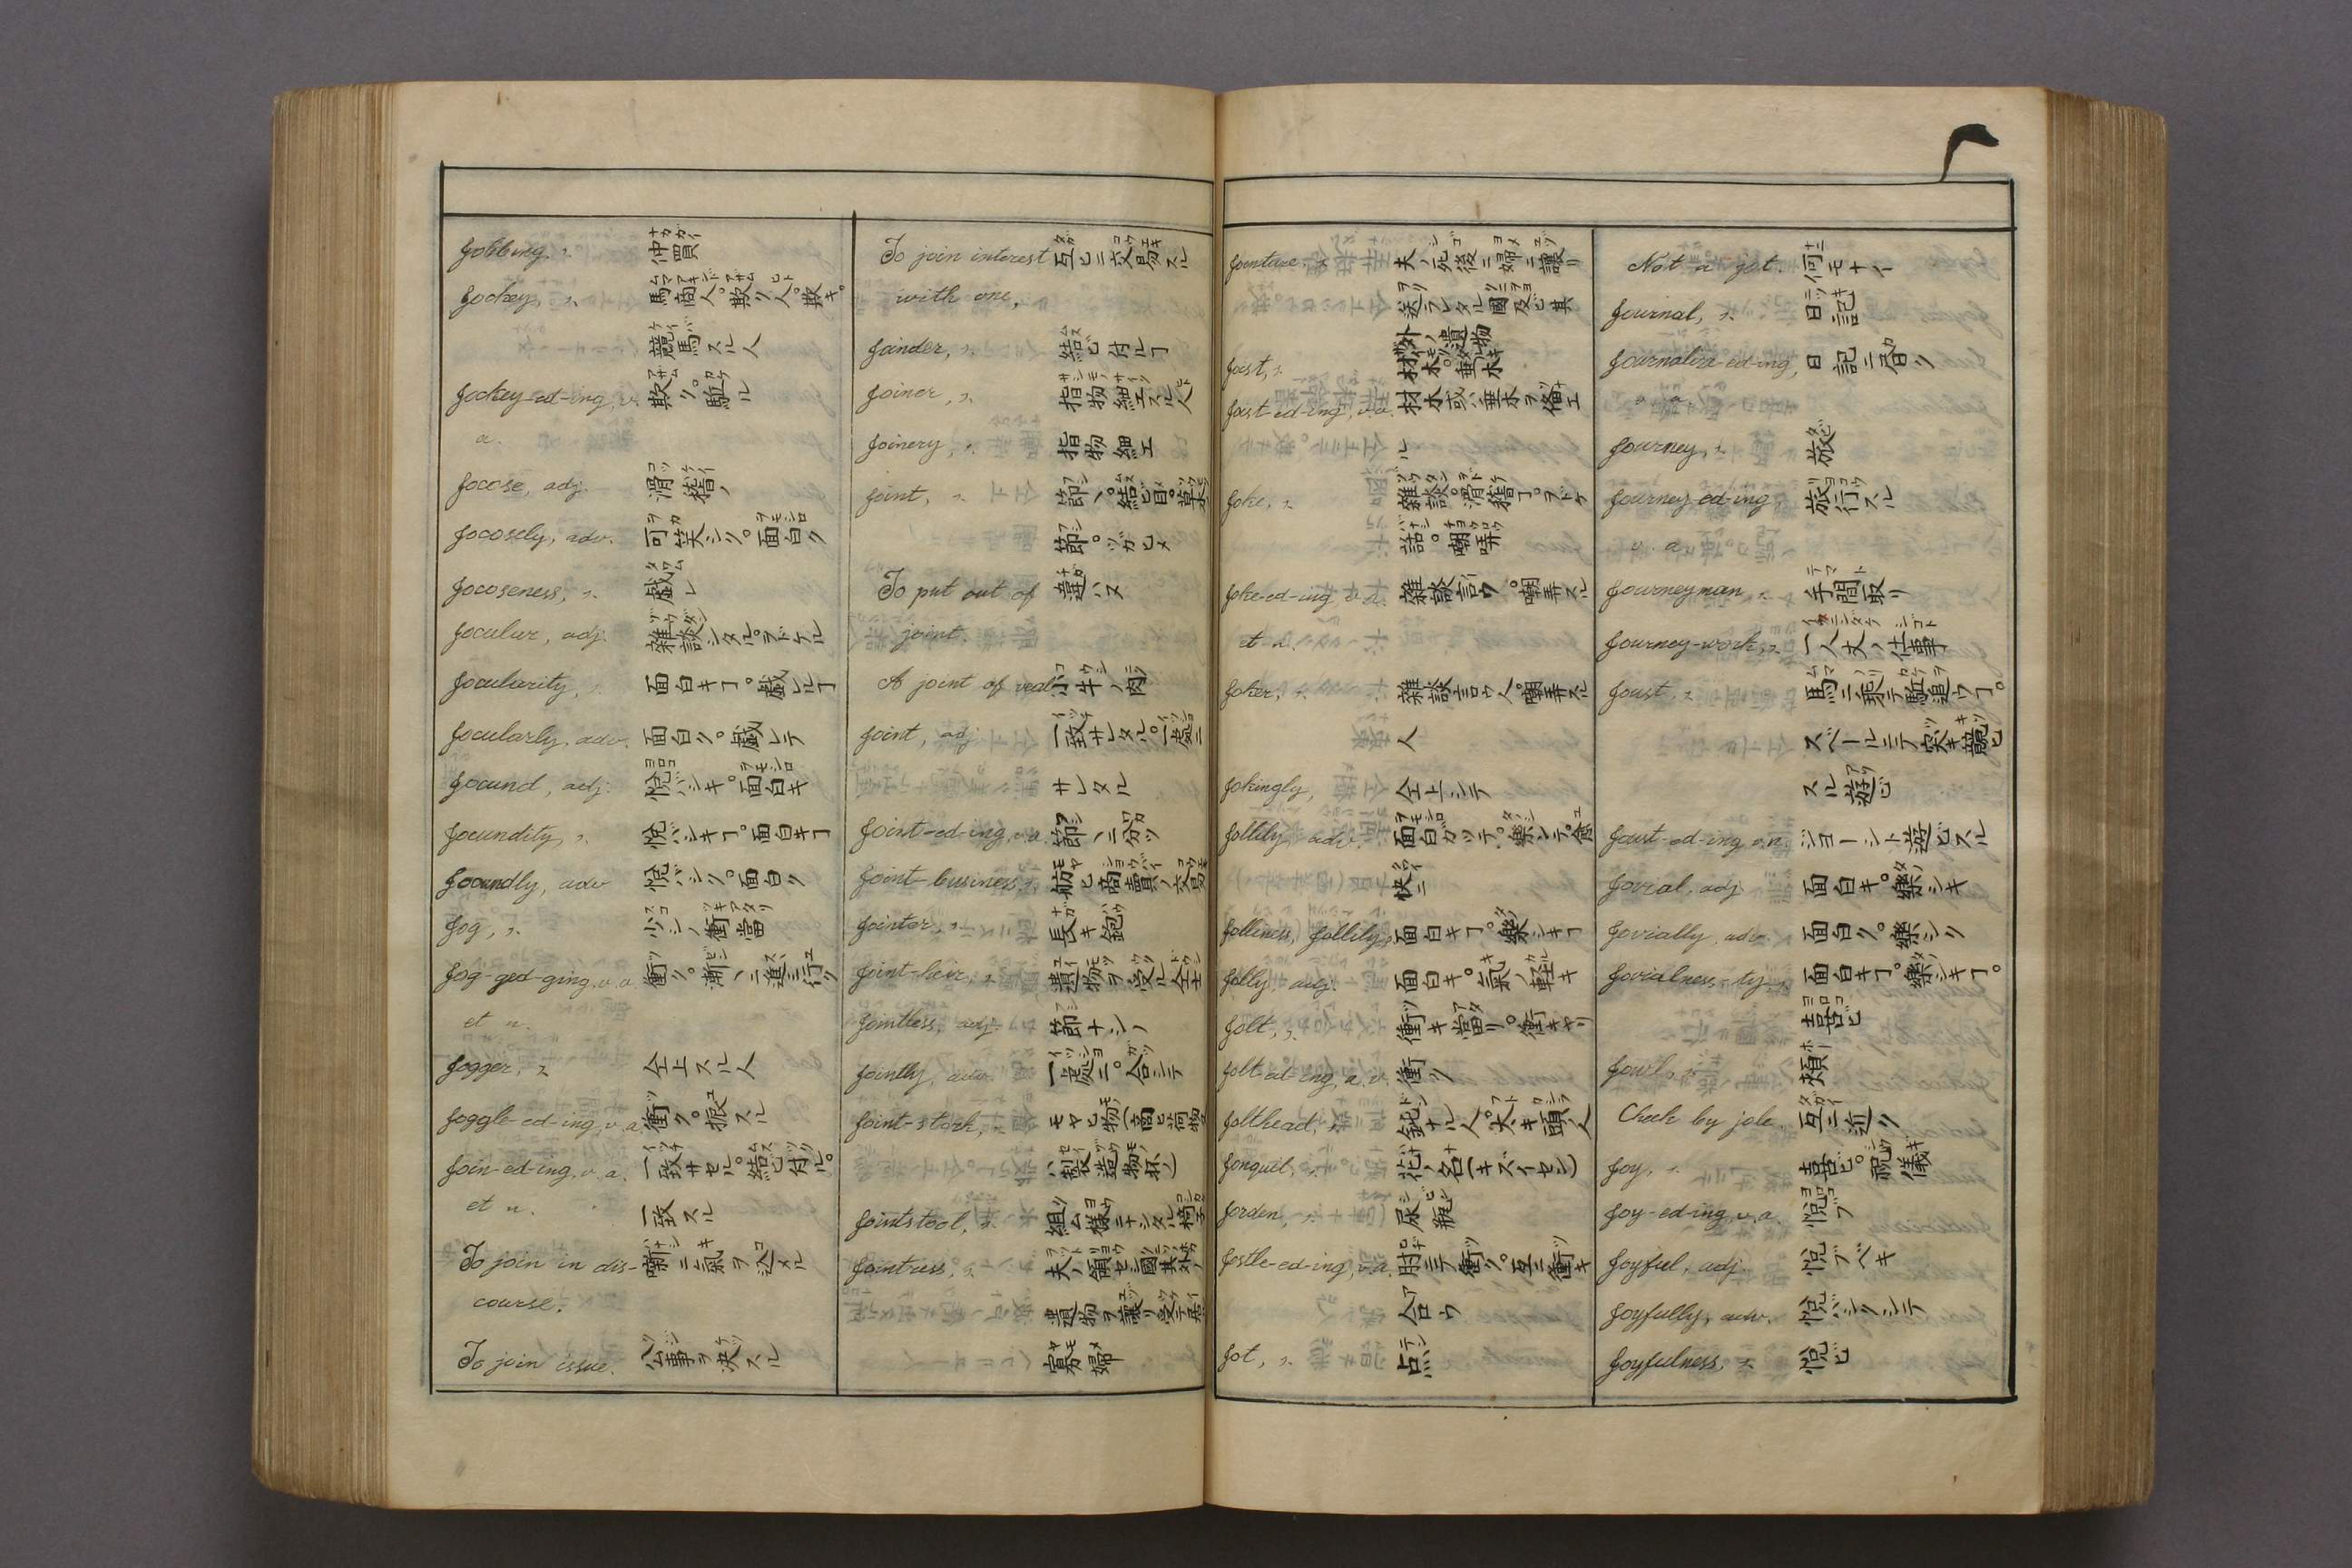 Jobbing, s. 仲買
Jockey, s. 馬商人。欺リ人。欺キ。
競馬スル人
Jockey-ed-ing, v. 欺ク。駈ル
a.
Jocose, adj. 滑稽ノ
Jocosely, adv. 可笑シク。面白ク
Jocoseness, s. 戯レ
Jocular, adj. 雜談シタル。ヲドケル
Jocularity, s. 面白キヿ。戯ルヽヿ
Jocularly, adv. 面白ク。戯レテ
Jocund, adj. 悅バシキ。面白キ
Jocundity, s. 悅バシキヿ。面白キヿ
Jocundly, adv 悅バシク。面白ク
Jog, s. 少シノ衝當
Jog-ged-ging, v. a. 衝ク。漸々ニ進ミ行ク
et n.
Jogger, s. 仝上スル人
Joggle-ed-ing, v. a. 衝ク。振スル
Join-ed-ing, v. a. 一致サセル。結ビ付ル。
et n. 一致スル
To join in dis- 噺ニ氣ヲ込メル
course.
To join issue. 公事ヲ決スル
To join interest 互ヒニ交易スル
with one.
Joinder, s. 結ビ付ルヿ
Joiner, s. 指物細工スル人
Joinery, s. 指物細工
Joint, s. 節々。結ビ目。草ノ
節。ツガヒメ
To put out of 違ハス
joint.
A joint of veal 小牛ノ肉
Joint, adj. 一致サレタル。一處ニ
サレタル
Joint-ed-ing, v. a. 節々ニ分ツ
Joint-business, s. 舫ヒ商賣ノ交易
Jointer, s. 長キ鉋
Joint-heir, s. 遺物ヲ受ル仝士
Jointless, adj. 節ナシノ
Jointly, adv. 一處ニ。合シテ
Joint-stock, s. モヤヒ物(商ヒ荷物
ハ製造物抔ノ)
Jointstool, s. 組ム樣ニナシタル椅子
Jointress, s. 夫ノ領セシ國其外ノ
遺物ヲ譲リ受テ居
寡婦
Jointure, s. 夫ノ死後ニ婦ニ譲リ
送ラレタル國及ビ其
外ノ遺物
Joist, s. 材木。垂木
Joist-ed-ing, v. a. 材木或ハ垂木ヲ備エ
ル
Joke, s. 雜談。滑稽ヿ。ヲドケ
話。嘲弄
Joke-ed-ing, v. n. 雜談言ウ。嘲弄スル
et a.
Joker, s. 雜談言ウ人。嘲弄スル
人
Jokingly, 仝上シテ
Jollily, adv. 面白ガツテ。樂シテ。愈
快ニ
Jolliness, Jollity, s. 面白キヿ。樂シキヿ
Jolly, adj. 面白キ。氣ノ軽キ
Jolt, s. 衝キ當リ。衝キヤリ
Jolt-ed-ing, a. v. 衝ク
Jolthead, s. 鈍ナル人。大キ頭ノ人
Jonquil, s. 花ノ名(キズイセン)
Jorden, s. 尿瓶
Jostle-ed-ing, v. a. 肘ニテ衝ク。互ニ衝キ
合ウ
Jot, s. 点
Not a jot. 何モナイ
Journal, s. 日記
Journalize-ed-ing, 日記ニ畄ク
v. a.
Journey, s. 旅
Journey-ed-ing, 旅行スル
v. a.
Journeyman, s. 手間取リ
Journey-work, s. 一人丈ノ仕事
Joust, s. 馬ニ乘テ駈追ウヿ。
スベールニテ突キ競ヒ
スル遊ビ
Joust-ed-ing, v. n. ジョーシト遊ビスル
Jovial, adj. 面白キ。樂シキ
Jovially, adv. 面白ク。樂シク
Jovialness-ty, s. 面白キヿ。樂シキヿ。
喜ビ
Jowl, s. 頬
Cheek by jole. 互ニ近ク
Joy, s. 喜ビ。祝儀
Joy-ed-ing, v. a. 悅ブ
Joyful, adj. 悅ブベキ
Joyfully, adv. 悅バシクシテ
Joyfulness, s. 悅ビ